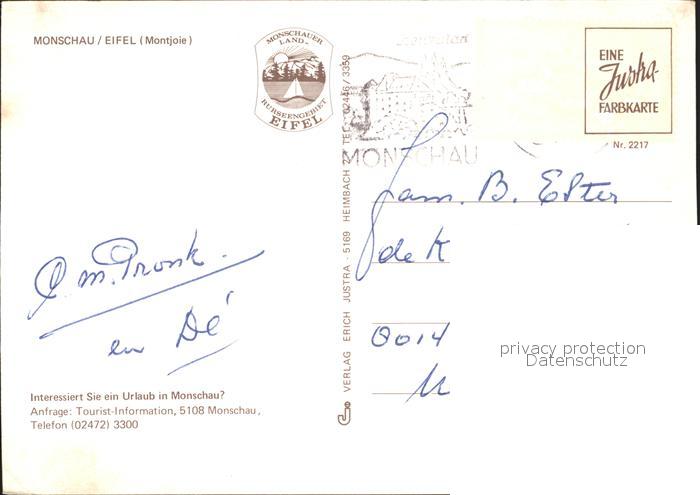 MONSCHAU / EIFEL (Montjoie)
MONSCHAUER
LAND-
RURSEENGEBIET
EIFEL
MONSCHAU
EINE
Justra-
FARBKARTE
Nr. 2217
VERLAG ERICH JUSTRA - 5169 HEIMBACH 2 - TEL. 02446 / 3359
Fam. B. Elter
de K
8014
privacy protection
Datenschutz
M. Pronk.
en Dé
Interessiert Sie ein Urlaub in Monschau?
Anfrage: Tourist-Information, 5108 Monschau,
Telefon (02472) 3300